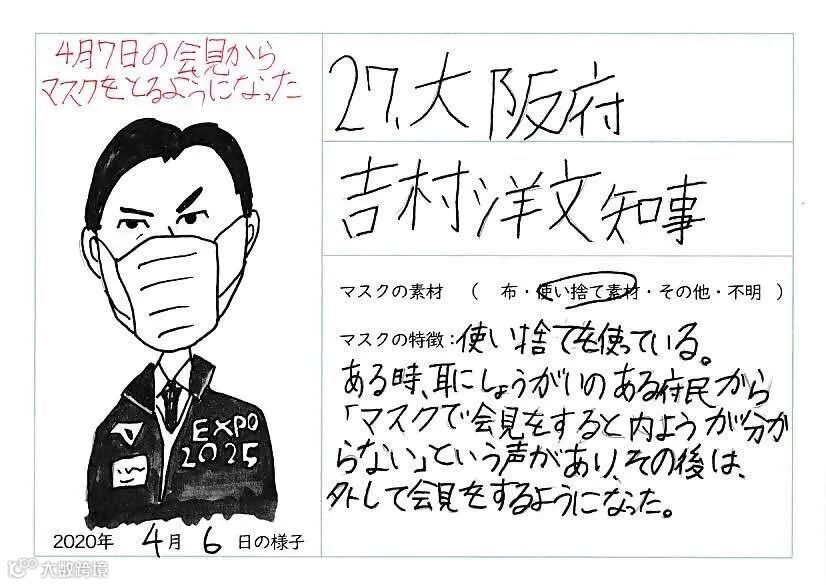 4月7日の会見から
マスクをとるようになった
EXPO
2025
2020年 4月 6日の様子
27.大阪府
吉村洋文知事
マスクの素材 ( 布・使い捨て素材・その他・不明 )
マスクの特徴:使い捨てを使っている。
ある時、耳にしょうがいのある府民から
「マスクで会見をすると内ようが分か
らない」という声があり、その後は、
外して会見をするようになった。
大数跨境